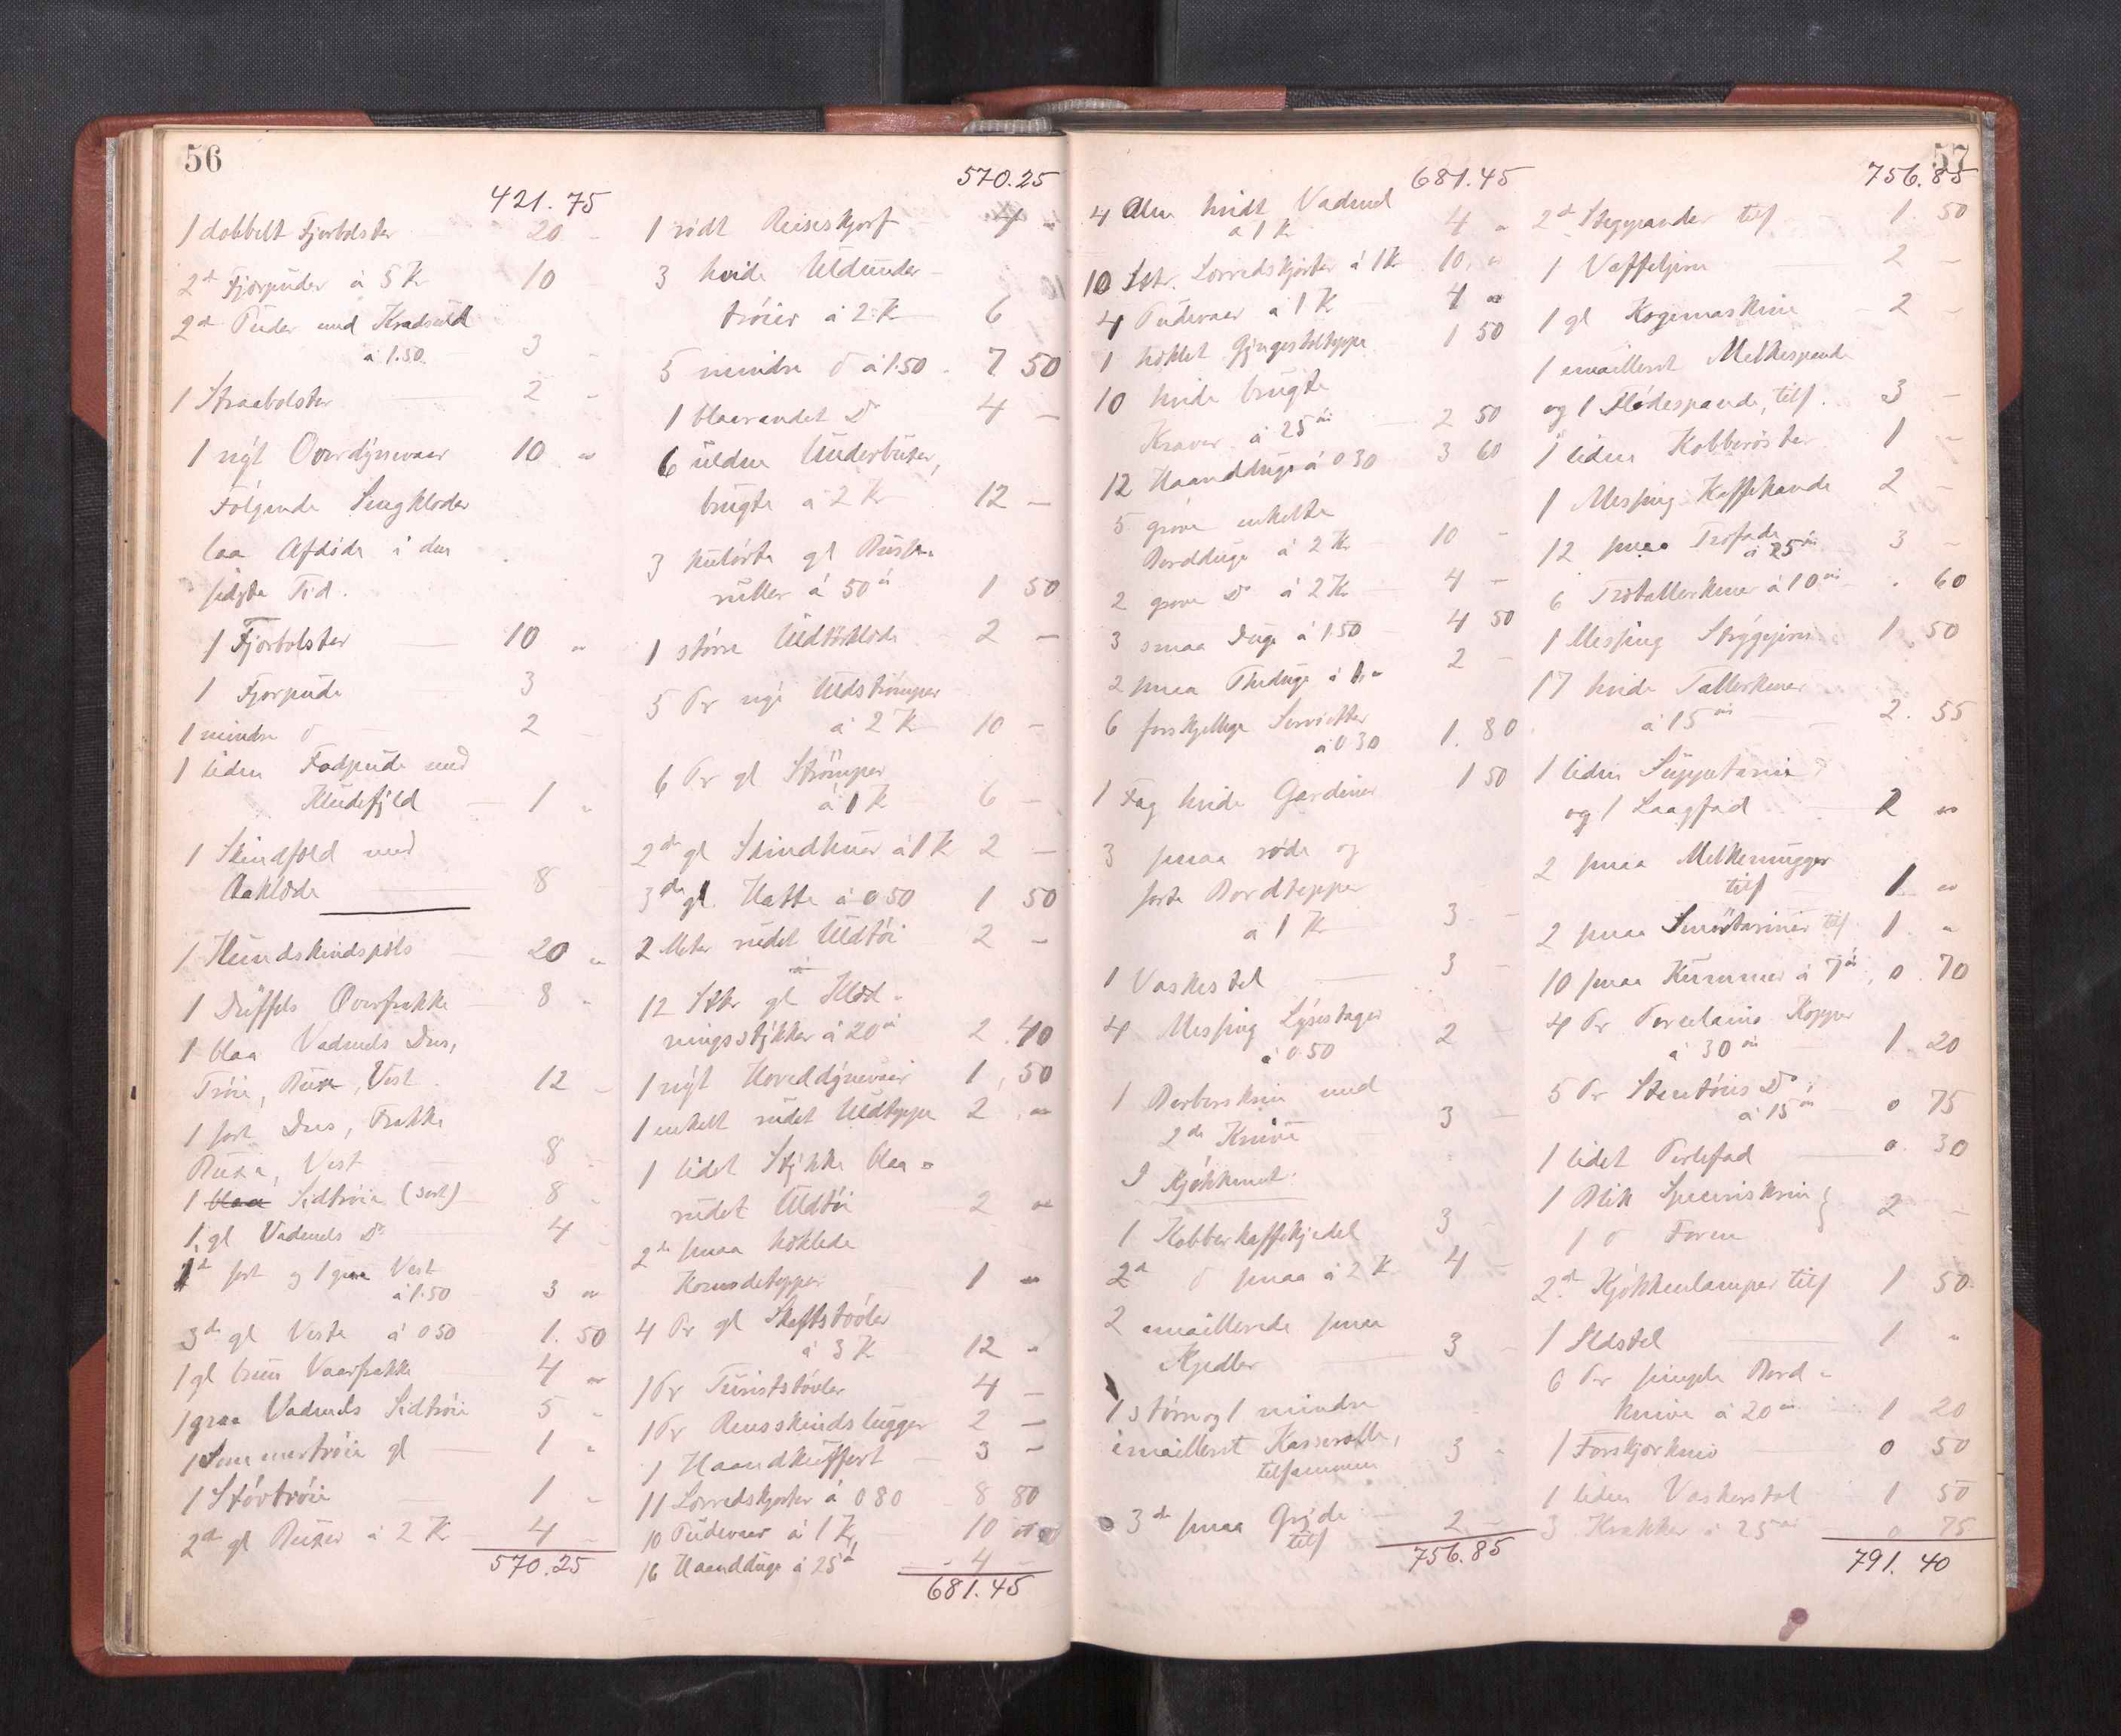 56
421.75
1 dobbelt Fjerbolster 20 -
2de Fjærpuder á 5 Kr 10
2de Puder med Kradsuld
á 1.50 3 -
1 Straabolster 2 -
1 nyt Overdynevaar 10 "
Følgende Sengklæder
laa Afdøde i den
sidste Tid.
1 Fjærbolster 10 "
1 Fjærpude 3
1 mindre do 2 -
1 liden Fodpude med
Kludefyld 1 "
1 Skindfæld med
Aaklæde 8
1 Hundskindspels 20 "
1 Düffels Overfrakke 8 "
1 blaa Vadmels Dres,
Trøie, Buxe, Vest 12 -
1 sort Dres, Frakke
Buxe, Vest 8 -
1 blaa Sidtrøie (sort) 8 "
1 gl Vadmels Do 4 -
1 sort og 1 graa Vest
á 1.50 3 "
3de gl Veste á 0 50 1.50
1 gl brun Vaarfrakke 4 "
1 graa Vadmels Sidtrøie 5 "
1 Sommertrøie gl 1 "
1 Støvtrøie 1 -
2de gl Buxer á 2 Kr 4 -
570.25
570.25
1 rødt Reiseskjørf 4 "
3 hvide Uldunder-
trøier á 2 K 6
5 mindre do á 1.50 7 50
1 blaarandet Do 4 -
6 uldne Underbuxer,
brugte á 2 Kr 12 -
3 kulørte gl
á 50 ø 1 50
1 større Uldtørklæde 2 -
5 Pr nye Uldstrømper
á 2 K 10 -
6 Pr gl Strømper
á 1 K 6 -
2de gl Skindhuer á 1 K 2 -
3de gl. Hatte á 0 50 1 50
2 Meter rudet Uldtøi 2 -
12 Stkr gl Klæd-
ningsstykker á 20 ø 2.40
1 nyt Hoveddynevaar 1,50
1 enkelt rudet Uldteppe 2 "
1 lidet Stykke blaa-
rudet Uldtøi 2 "
2de smaa heklede
Komodetepper 1 "
4 Pr gl Skaftstøvler
á 3 K 12 "
1 Pr Turiststøvler 4 -
1 Pr Rensskindslugger 2 -
1 Haandkuffert 3 -
11 Lærredskjorter á 0 80 8 80
10 Pudevaar á 1 Kr 10 "
16 Haandduge á 25 ø 4 -
681.45
57
681.45
4 Alen hvidt Vadmel
á 1 K 4 "
10 Stkr. Lærredskjorter á 1 Kr 10 "
4 Pudevaar á 1 K 4 "
1 heklet Gyngestolteppe 1 50
10 hvide brugte
Kraver á 25 ø 2 50
12 Haandduge á 0 30 3 60
5 grove enkelte
Bordduge á 2 Kr 10 -
2 grove Do á 2 Kr 4 -
3 smaa Duge á 1.50 4 50
2 smaa Theduge á 1 " 2 -
6 forskjellige Servietter
á 0 30 1.80
1 Fag hvide Gardiner 1 50
3 smaa røde og
sorte Bordtepper
á 1 K 3 -
1 Vaskestel 3 -
4 Messing Lysestager
á 0.50 2 -
1 Barberskrin med
2de Knive 3 -
I Kjøkkenet:
1 Kobberkaffekjedel 3 -
2de do smaa á 2 K 4 -
2 emaillerede smaa
Kjedler 3 -
1 større og 1 mindre
emailleret Kasserolle,
tilsammen 3 "
3de smaa Gryde
tils 2 -
756.85
756.85
2de Stegepander tils 1.50
1 Vaffeljern 2 -
1 gl Kogemaskine 2 -
1 emailleret Melkespande
og 1 Flødespande, tils. 3 -
1 liden Kobberøster 1 -
1 Messing Kaffekande 2 -
12 smaa Træfade
á 25 ø 3 -
6 Trætallerkener á 10 ø . 60
1 Messing Strygejern 1.50
17 hvide Tallerkener
á 15 ø 2.55
1 liden Suppeterrin
og 1 Laagfad 2 "
2 smaa Melkemugger
tils 1 "
2 smaa Smørteriner tils 1 "
10 smaa Kummer á 7 ø 0.70
4 Pr Porcelains Kopper
á 30 ø 1.20
5 Pr Stentøis Do
á 15 ø 0 75
1 lidet Perlefad 0.30
1 Blik Speceriskrin }
1 do Form } 2 -
2de Kjøkkenlamper tils 1 50
1 Ildstel 1 "
6 Pr simple Bord-
knive á 20 ø 1 20
1 Forskjærkniv 0 50
1 liden Vaskerstol 1 50
3 Krakker á 25 ø 0 75
791.40